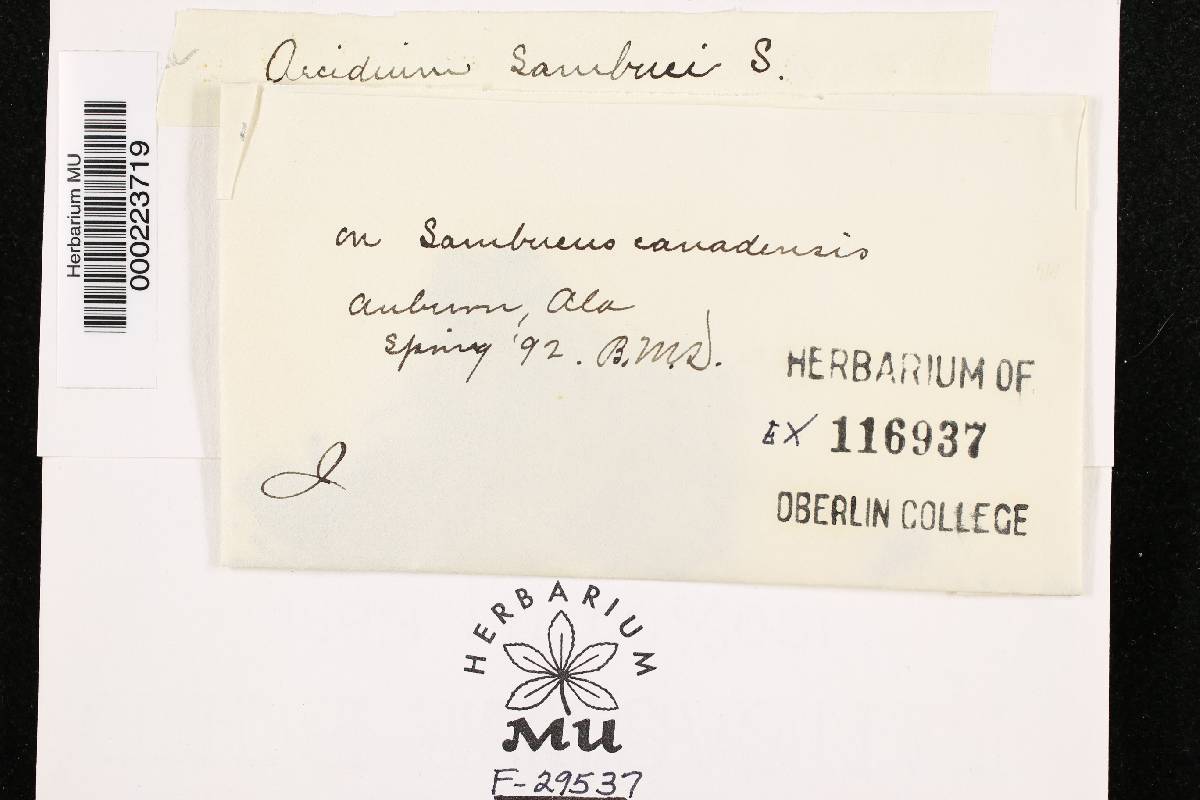 Aecidium Sambuci S.
Herbarium MU
000223719
on Sambucus canadensis
Auburn, Ala
Spring '92. B.M.D.
HERBARIUM OF
EX 116937
OBERLIN COLLEGE
HERBARIUM
MU
F-29537